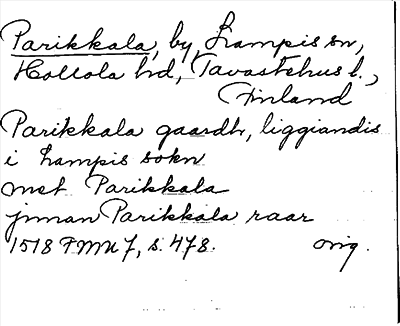 Parikkala, by, Lampis sn,
Hollola hd, Tavastehus l.,
Finland
Parikkala gaardh, liggiandis
i Lampis sokn
met Parikkala
jnnan Parikkala raar
1518 FMU 7, s. 478. orig.